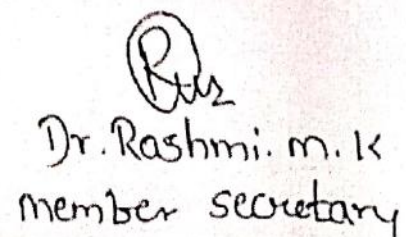 Dr. Rashmi. m. k
member secretary